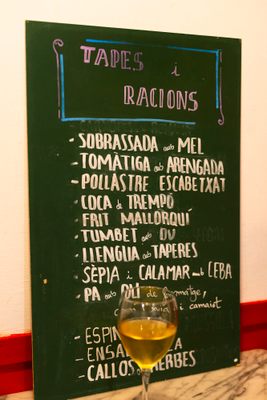 TAPES i
RACIONS
- SOBRASSADA amb MEL
- TOMÀTIGA amb ARENGADA
- POLLASTRE ESCABETXAT
- COCA de TREMPÓ
- FRIT MALLORQUÍ
- TUMBET amb OU
- LLENGUA amb TAPERES
- SÈPIA i CALAMAR amb CEBA
- PA amb OLI de formatge,
i camaiot
- ESPIN
- ENSA
- CALLOS HERBES